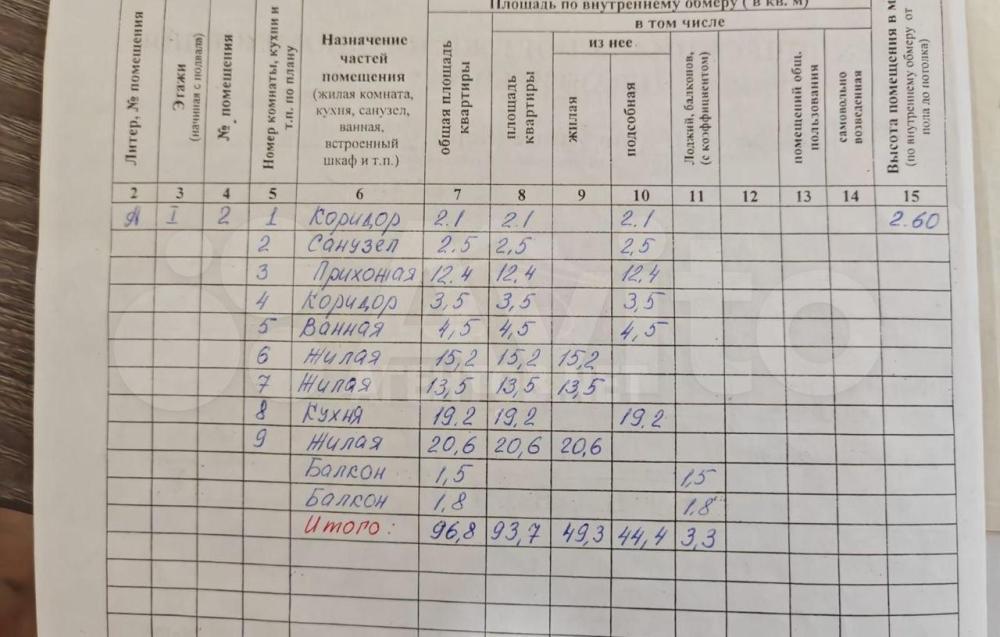 Площадь по внутреннему обмеру ( в кв. м)
в том числе
из нее
Литер, № помещения
Этажи
(начиная с подвала)
№ помещения
Номер комнаты, кухни и
т.п. по плану
Назначение
частей
помещения
(жилая комната,
кухня, санузел,
ванная,
встроенный
шкаф и т.п.)
общая площадь
квартиры
площадь
квартиры
жилая
подсобная
Лоджий, балконов,
(с коэффициентом)
помещений общ.
пользования
самовольно
возведенная
Высота помещения в м
(по внутреннему обмеру от
пола до потолка)
2 3 4 5 6 7 8 9 10 11 12 13 14 15
А I 2 1 Коридор 2.1 2.1 2.1 2.60
2 Санузел 2.5 2,5 2,5
3 Прихожая 12.4 12.4 12,4
4 Коридор 3,5 3,5 3,5
5 Ванная 4,5 4,5 4,5
6 Жилая 15,2 15,2 15,2
7 Жилая 13,5 13,5 13,5
8 Кухня 19.2 19,2 19,2
9 Жилая 20,6 20,6 20,6
Балкон 1,5 1,5
Балкон 1,8 1.8
Итого: 96,8 93,7 49,3 44,4 3,3
Avito